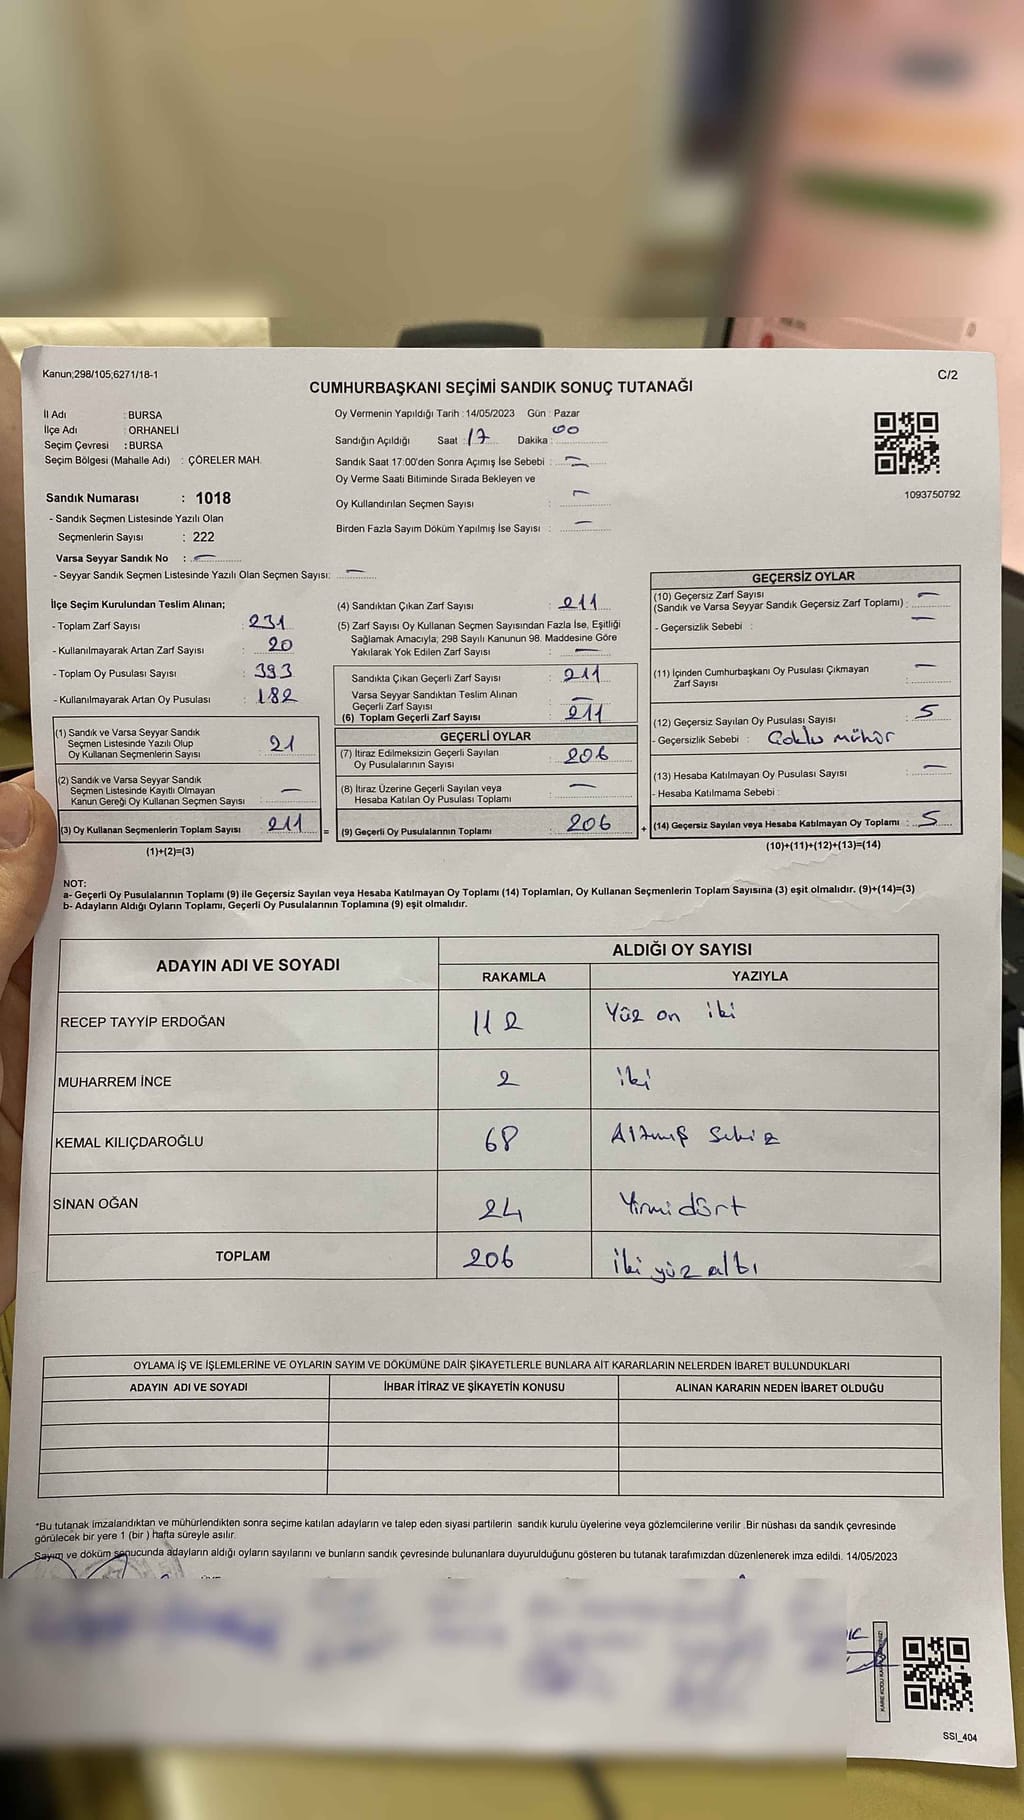 Kanun;298/105;6271/18-1
C/2
CUMHURBAŞKANI SEÇİMİ SANDIK SONUÇ TUTANAĞI
İl Adı : BURSA
İlçe Adı : ORHANELİ
Seçim Çevresi : BURSA
Seçim Bölgesi (Mahalle Adı) : ÇÖRELER MAH.
Oy Vermenin Yapıldığı Tarih : 14/05/2023 Gün : Pazar
Sandığın Açıldığı Saat : 17 Dakika : 00
Sandık Saat 17:00'den Sonra Açımış İse Sebebi : —
Oy Verme Saati Bitiminde Sırada Bekleyen ve
Oy Kullandırılan Seçmen Sayısı : —
Birden Fazla Sayım Döküm Yapılmış İse Sayısı : —
1093750792
Sandık Numarası : 1018
- Sandık Seçmen Listesinde Yazılı Olan
Seçmenlerin Sayısı : 222
Varsa Seyyar Sandık No : —
- Seyyar Sandık Seçmen Listesinde Yazılı Olan Seçmen Sayısı: —
İlçe Seçim Kurulundan Teslim Alınan;
- Toplam Zarf Sayısı : 231
- Kullanılmayarak Artan Zarf Sayısı : 20
- Toplam Oy Pusulası Sayısı : 393
- Kullanılmayarak Artan Oy Pusulası : 182
(1) Sandık ve Varsa Seyyar Sandık
Seçmen Listesinde Yazılı Olup
Oy Kullanan Seçmenlerin Sayısı : 21
(2) Sandık ve Varsa Seyyar Sandık
Seçmen Listesinde Kayıtlı Olmayan
Kanun Gereği Oy Kullanan Seçmen Sayısı : —
(3) Oy Kullanan Seçmenlerin Toplam Sayısı : 211
(1)+(2)=(3)
(4) Sandıktan Çıkan Zarf Sayısı : 211
(5) Zarf Sayısı Oy Kullanan Seçmen Sayısından Fazla İse, Eşitliği
Sağlamak Amacıyla; 298 Sayılı Kanunun 98. Maddesine Göre
Yakılarak Yok Edilen Zarf Sayısı : —
Sandıkta Çıkan Geçerli Zarf Sayısı : 211
Varsa Seyyar Sandıktan Teslim Alınan
Geçerli Zarf Sayısı : —
(6) Toplam Geçerli Zarf Sayısı : 211
GEÇERLİ OYLAR
(7) İtiraz Edilmeksizin Geçerli Sayılan
Oy Pusulalarının Sayısı : 206
(8) İtiraz Üzerine Geçerli Sayılan veya
Hesaba Katılan Oy Pusulası Toplamı : —
= (9) Geçerli Oy Pusulalarının Toplamı : 206
GEÇERSİZ OYLAR
(10) Geçersiz Zarf Sayısı
(Sandık ve Varsa Seyyar Sandık Geçersiz Zarf Toplamı) : —
- Geçersizlik Sebebi : —
(11) İçinden Cumhurbaşkanı Oy Pusulası Çıkmayan
Zarf Sayısı : —
(12) Geçersiz Sayılan Oy Pusulası Sayısı : 5
- Geçersizlik Sebebi : Çoklu mühür
(13) Hesaba Katılmayan Oy Pusulası Sayısı : —
- Hesaba Katılmama Sebebi :
+ (14) Geçersiz Sayılan veya Hesaba Katılmayan Oy Toplamı : 5
(10)+(11)+(12)+(13)=(14)
NOT:
a- Geçerli Oy Pusulalarının Toplamı (9) ile Geçersiz Sayılan veya Hesaba Katılmayan Oy Toplamı (14) Toplamları, Oy Kullanan Seçmenlerin Toplam Sayısına (3) eşit olmalıdır. (9)+(14)=(3)
b- Adayların Aldığı Oyların Toplamı, Geçerli Oy Pusulalarının Toplamına (9) eşit olmalıdır.
ADAYIN ADI VE SOYADI ALDIĞI OY SAYISI
RAKAMLA YAZIYLA
RECEP TAYYİP ERDOĞAN 112 Yüz on iki
MUHARREM İNCE 2 iki
KEMAL KILIÇDAROĞLU 68 Altmış Sekiz
SİNAN OĞAN 24 Yirmi dört
TOPLAM 206 iki yüz altı
OYLAMA İŞ VE İŞLEMLERİNE VE OYLARIN SAYIM VE DÖKÜMÜNE DAİR ŞİKAYETLERLE BUNLARA AİT KARARLARIN NELERDEN İBARET BULUNDUKLARI
ADAYIN ADI VE SOYADI İHBAR İTİRAZ VE ŞİKAYETİN KONUSU ALINAN KARARIN NEDEN İBARET OLDUĞU
*Bu tutanak imzalandıktan ve mühürlendikten sonra seçime katılan adayların ve talep eden siyasi partilerin sandık kurulu üyelerine veya gözlemcilerine verilir .Bir nüshası da sandık çevresinde
görülecek bir yere 1 (bir ) hafta süreyle asılır.
Sayım ve döküm sonucunda adayların aldığı oyların sayılarını ve bunların sandık çevresinde bulunanlara duyurulduğunu gösteren bu tutanak tarafımızdan düzenlenerek imza edildi. 14/05/2023
SSI_404